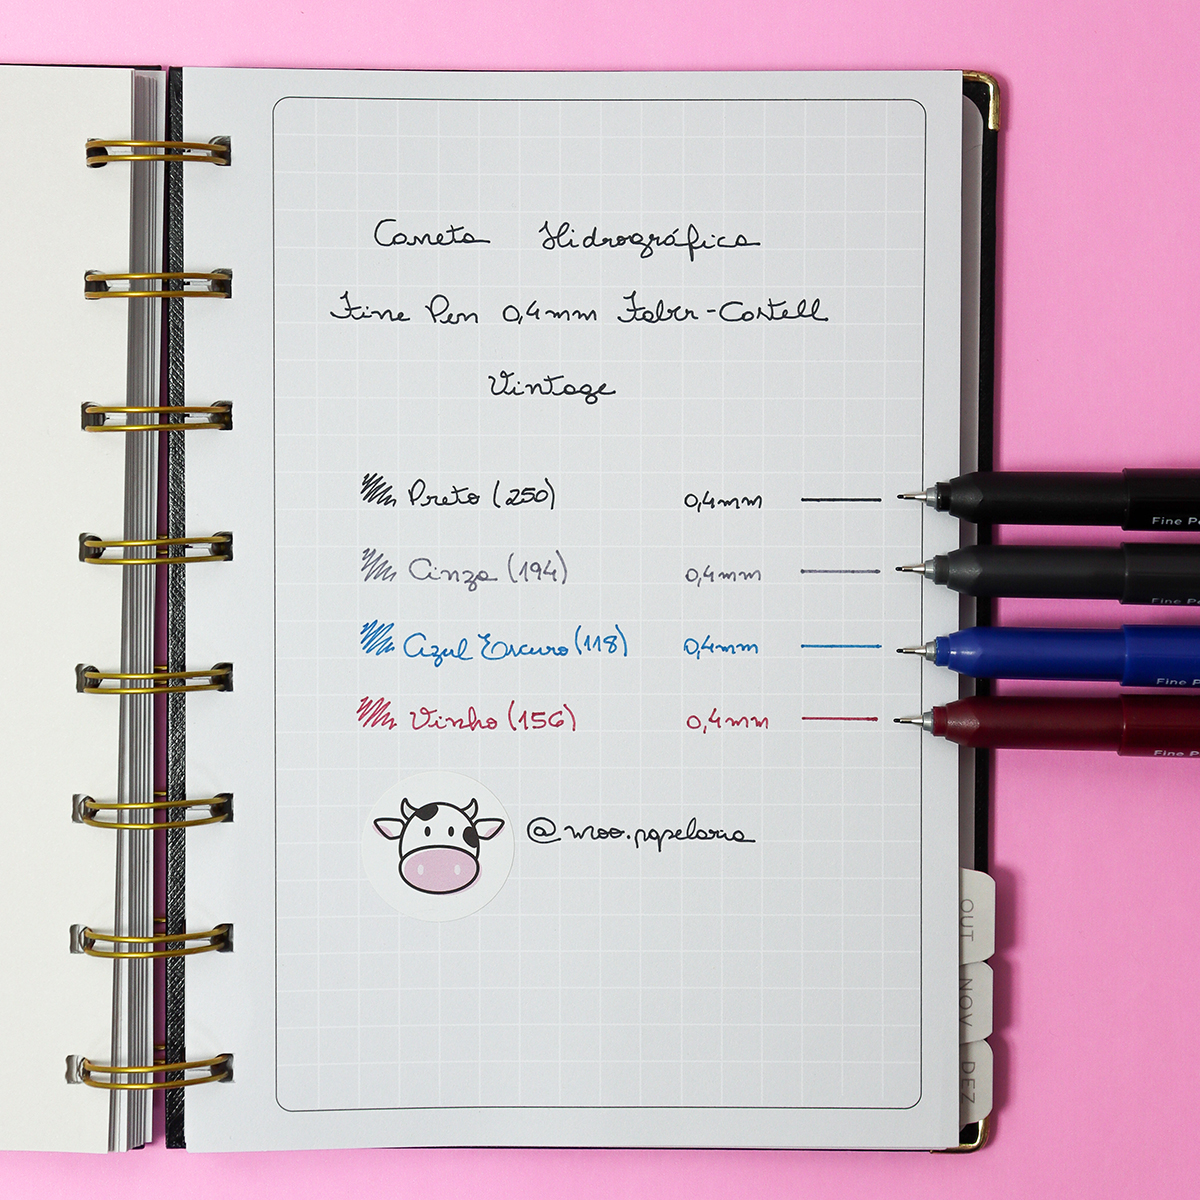 Caneta Hidrográfica
Fine Pen 0,4mm Faber-Castell
Vintage
Preto (250) 0,4mm
Cinza (194) 0,4mm
Azul Escuro (118) 0,4mm
Vinho (156) 0,4mm
@moo.papelaria
Fine Pe
Fine Pe
Fine P
Fine P
OUT
NOV
DEZ